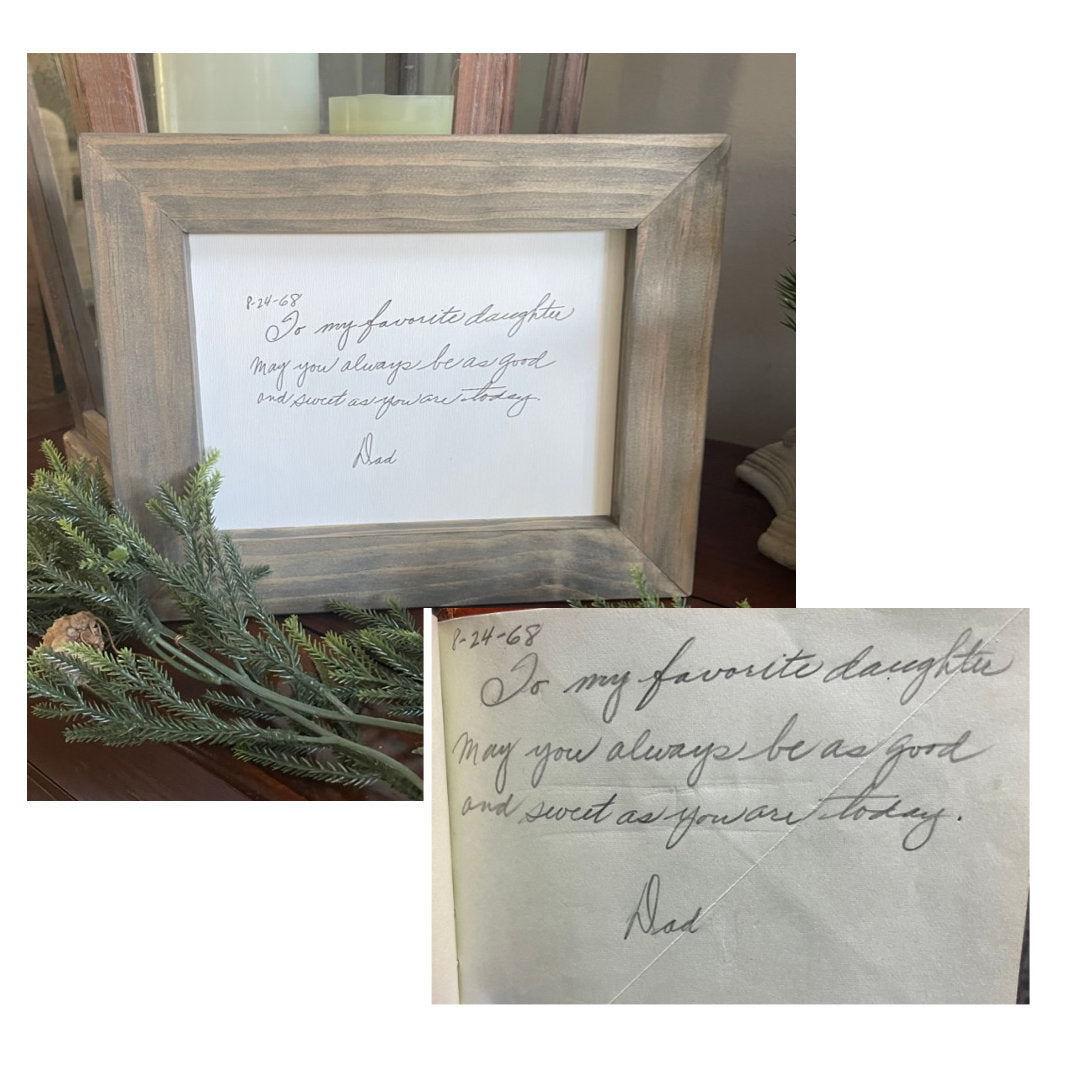 8-24-68
To my favorite daughter
may you always be as good
and sweet as you are today.
Dad
8-24-68
To my favorite daughter
may you always be as good
and sweet as you are today.
Dad